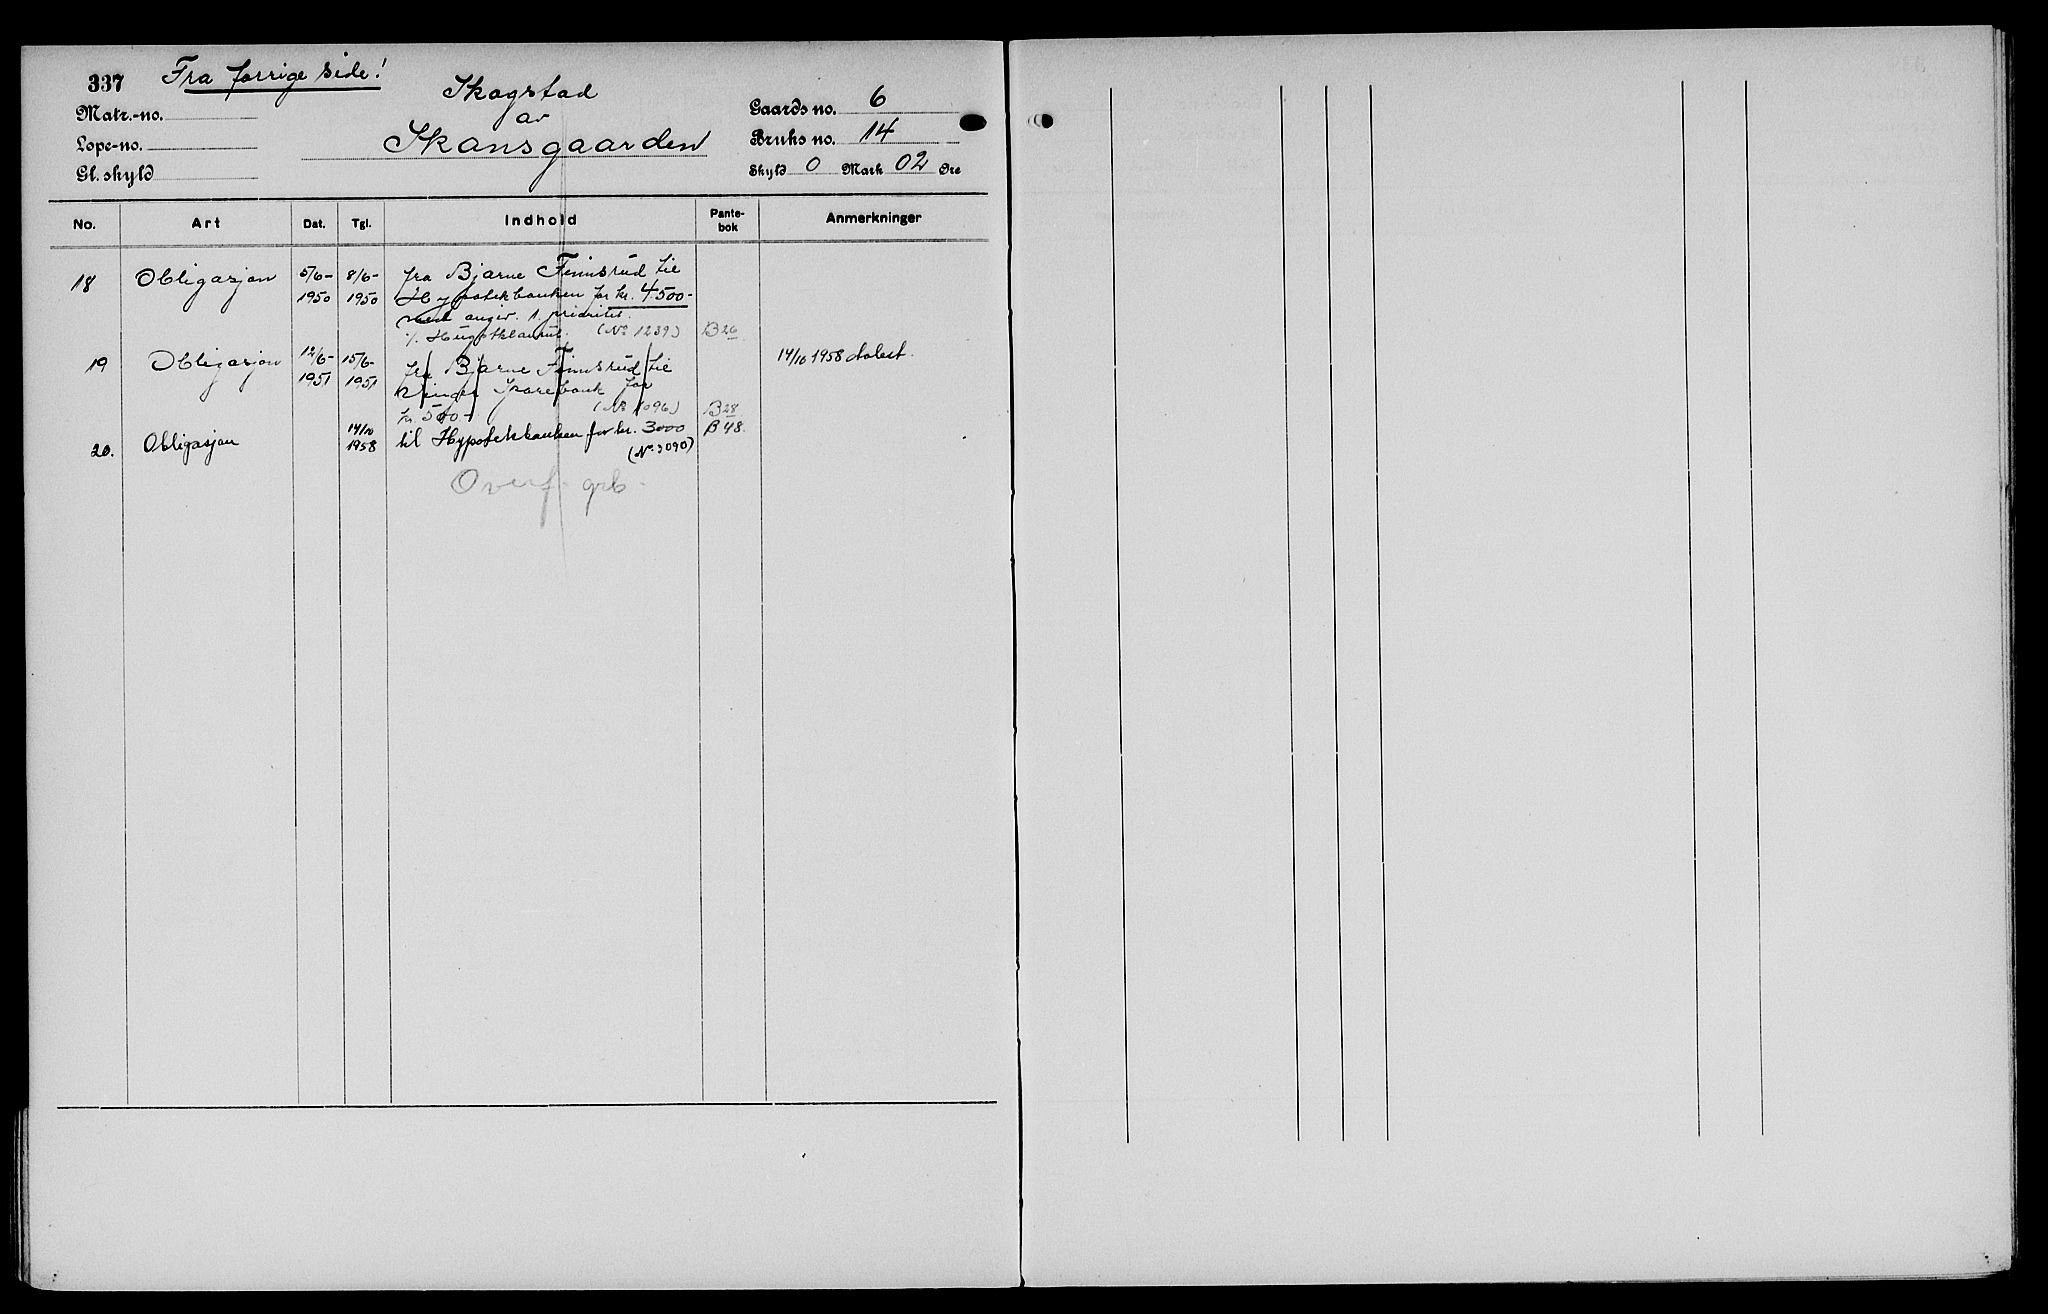 337 Fra forrige side!
Skogstad
av
Skansgaarden
Matr.-no.
Løpe-no.
Gl. skyld
Gaards no. 6
Bruks no. 14
Skyld 0 Mark 02 Øre
No. Art Dat. Tgl. Indhold Pante-bok Anmerkninger
18 Obligasjon 5/6- 1950 8/6- 1950 fra Bjarne Finnsrud til
Hypotekbanken for kr. 4.500-
med angiv. 1. prioritet.
(No 1239) B 26
19 Obligasjon 12/6- 1951 15/6- 1951 fra Bjarne Finnsrud til
Sparebank for
kr. 500- (No 1096) B 28
14/10 1958 avlest.
20. Obligasjon 14/10 1958 til Hypotekbanken for kr. 3000 B 48.
(No 3090)
Overf. grb.